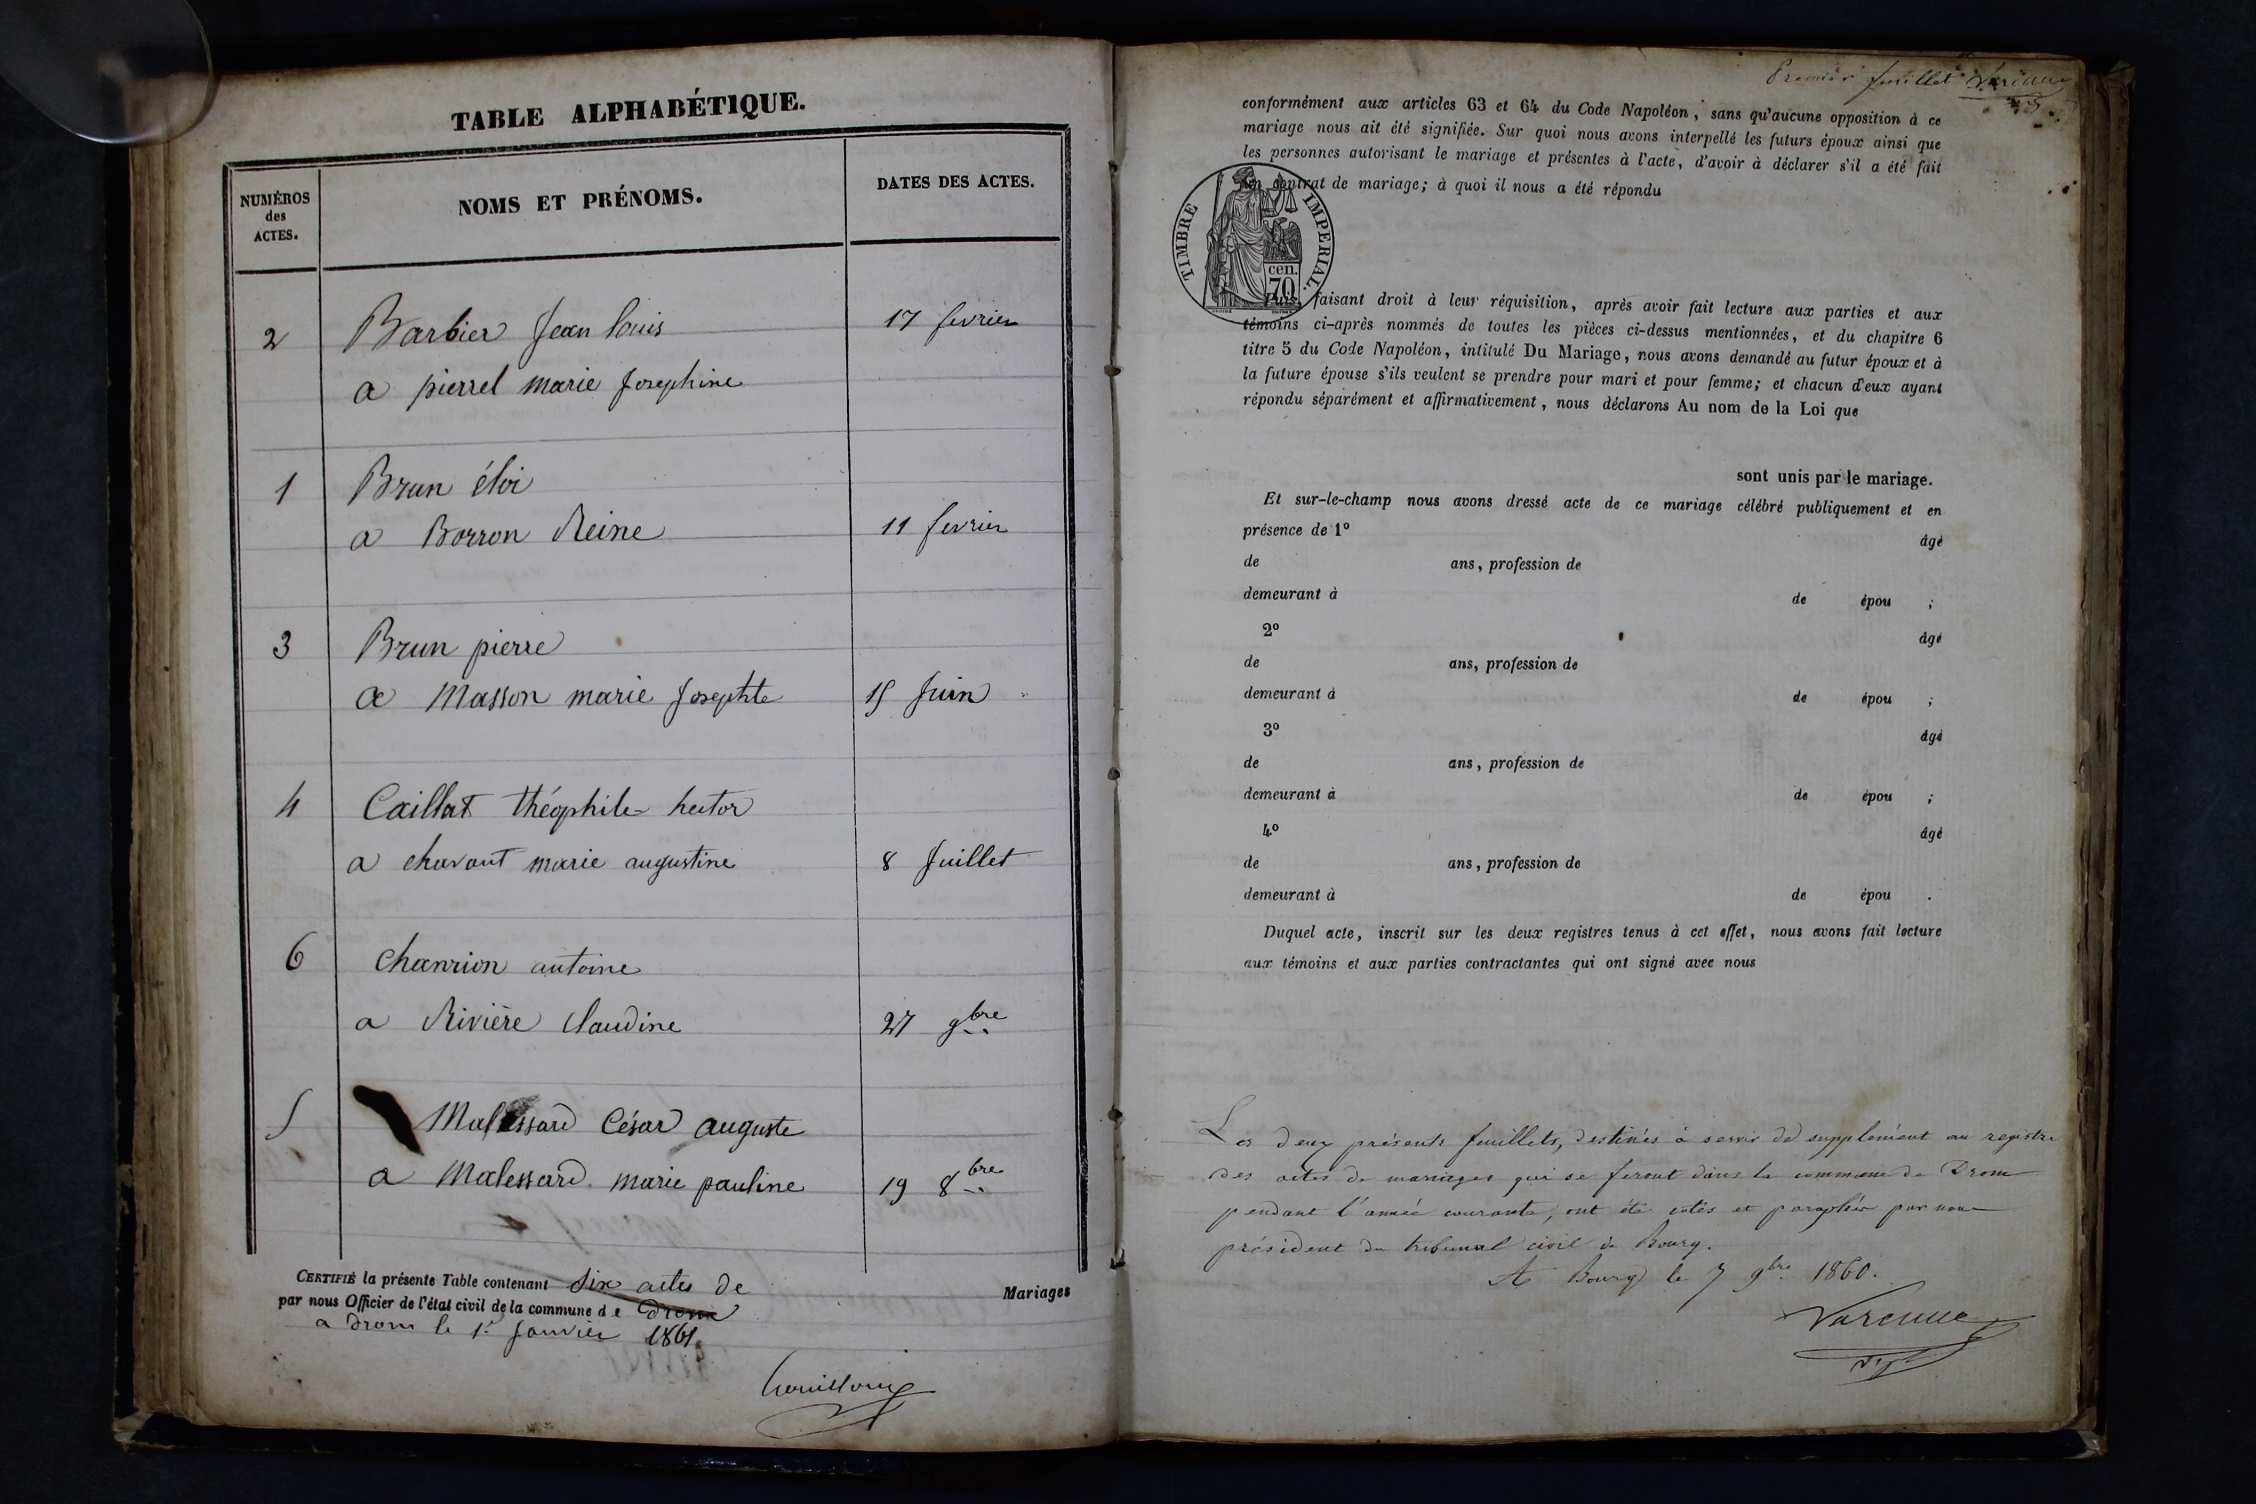 TABLE ALPHABÉTIQUE.
NUMÉROS
des
ACTES.
NOMS ET PRÉNOMS.
DATES DES ACTES.
2 Barbier Jean louis 17 fevrier
a pierrel marie Josephine
1 Brun éloi
a Borron Reine 11 fevrier
3 Brun pierre
a Masson marie Josephte 15 Juin
4 Caillat théophile hector
a chavant marie augustine 8 Juillet
6 chanrion antoine
a Rivière claudine 27 9bre
5 Malessard César auguste
a Malessard marie pauline 19 8bre
CERTIFIÉ la présente Table contenant Six actes de Mariages
par nous Officier de l'état civil de la commune de Drom
a Drom le 1er Janvier 1861
Premier feuillet Varenne
conformément aux articles 63 et 64 du Code Napoléon, sans qu'aucune opposition à ce
mariage nous ait été signifiée. Sur quoi nous avons interpellé les futurs époux ainsi que
les personnes autorisant le mariage et présentes à l'acte, d'avoir à déclarer s'il a été fait
un contrat de mariage; à quoi il nous a été répondu
TIMBRE IMPERIAL.
cen.
70
Puis, faisant droit à leur réquisition, après avoir fait lecture aux parties et aux
témoins ci-après nommés de toutes les pièces ci-dessus mentionnées, et du chapitre 6
titre 5 du Code Napoléon, intitulé Du Mariage, nous avons demandé au futur époux et à
la future épouse s'ils veulent se prendre pour mari et pour femme; et chacun d'eux ayant
répondu séparément et affirmativement, nous déclarons Au nom de la Loi que
sont unis par le mariage.
Et sur-le-champ nous avons dressé acte de ce mariage célébré publiquement et en
présence de 1º âgé
de ans, profession de
demeurant à de épou ;
2º âgé
de ans, profession de
demeurant à de épou ;
3º âgé
de ans, profession de
demeurant à de épou ;
4º âgé
de ans, profession de
demeurant à de épou .
Duquel acte, inscrit sur les deux registres tenus à cet effet, nous avons fait lecture
aux témoins et aux parties contractantes qui ont signé avec nous
Les deux présents feuillets, destinés à servir de supplément au registre
des actes de mariages qui se feront dans la commune de Drom
pendant l'année courante, ont été cotés et paraphés par nous
président du tribunal civil de Bourg.
A Bourg le 7 9bre 1860.
Varenne